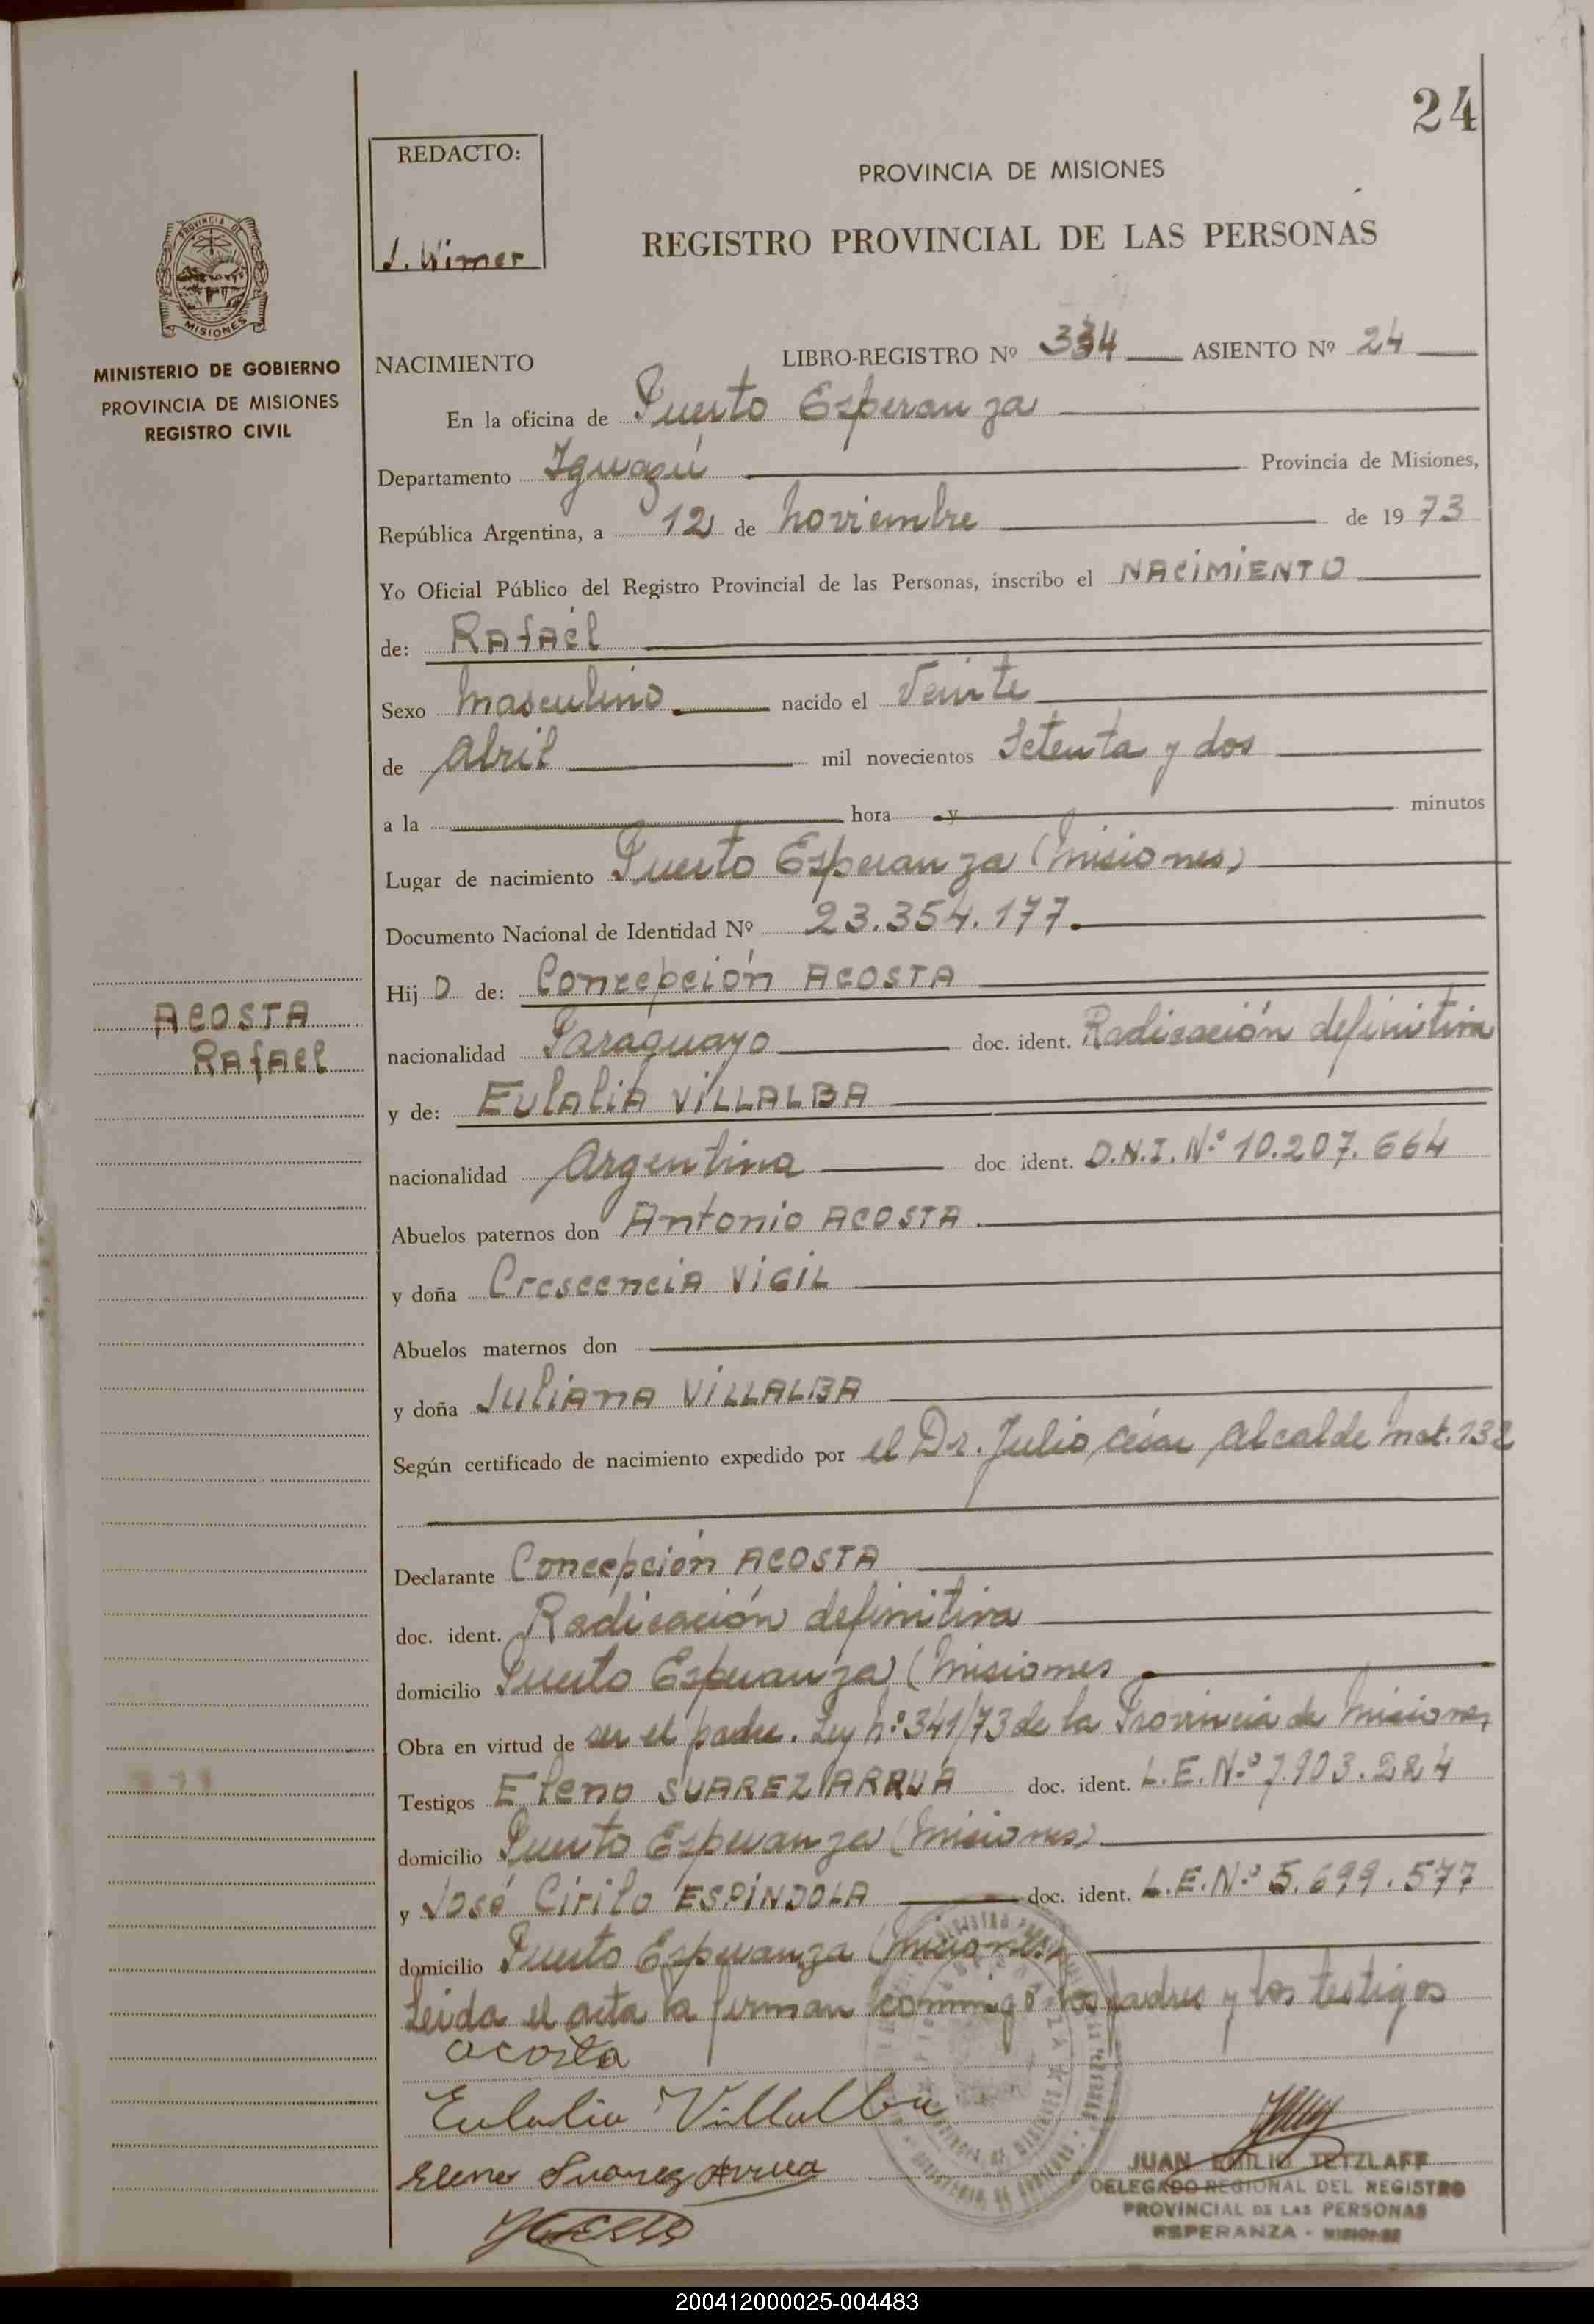 24
REDACTO:
J. Wimer
PROVINCIA DE MISIONES
REGISTRO PROVINCIAL DE LAS PERSONAS
PROVINCIA DE
MISIONES
MINISTERIO DE GOBIERNO
PROVINCIA DE MISIONES
REGISTRO CIVIL
NACIMIENTO LIBRO-REGISTRO Nº 334 ASIENTO Nº 24
En la oficina de Puerto Esperanza
Departamento Iguazú Provincia de Misiones,
República Argentina, a 12 de noviembre de 1973
Yo Oficial Público del Registro Provincial de las Personas, inscribo el NACIMIENTO
de: Rafael
Sexo masculino nacido el Veinte
de Abril mil novecientos Setenta y dos
a la hora y minutos
Lugar de nacimiento Puerto Esperanza (Misiones)
Documento Nacional de Identidad Nº 23.354.177.
Hijo de: Concepción ACOSTA
ACOSTA
Rafael
nacionalidad Paraguayo doc. ident. Radicación definitiva
y de: Eulalia VILLALBA
nacionalidad Argentina doc ident. D.N.I. Nº 10.207.664
Abuelos paternos don Antonio ACOSTA.
y doña Crescencia VIGIL
Abuelos maternos don
y doña Juliana VILLALBA
Según certificado de nacimiento expedido por el Dr. Julio César Alcalde Mat. 132
Declarante Concepción ACOSTA
doc. ident. Radicación definitiva
domicilio Puerto Esperanza (Misiones
Obra en virtud de ser el padre. Ley nº 341/73 de la Provincia de Misiones
Testigos Eleno SUAREZ ARRUA doc. ident. L.E. Nº 7.903.284
domicilio Puerto Esperanza (Misiones)
y José Cirilo ESPÍNDOLA doc. ident. L.E. Nº 5.699.577
domicilio Puerto Esperanza (Misiones)
Leida el acta la firman conmigo los padres y los testigos
acosta
Eulalia Villalba
Eleno Suarez Arrua
JUAN EMILIO TETZLAFF
DELEGADO REGIONAL DEL REGISTRO
PROVINCIAL DE LAS PERSONAS
ESPERANZA - MISIONES
200412000025-004483